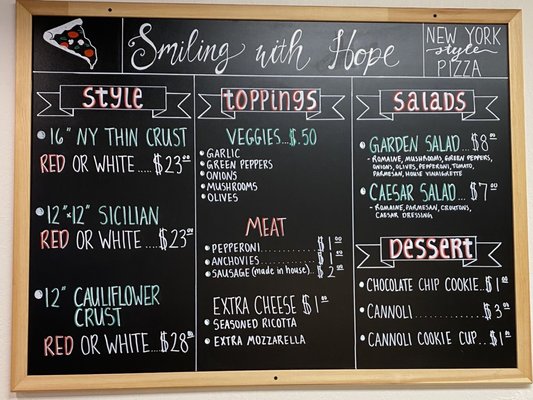 Smiling with Hope
NEW YORK
style
PIZZA
STYLE
16" NY THIN CRUST
RED OR WHITE.....$23.00
12"x12" SICILIAN
RED OR WHITE....$23.00
12" CAULIFLOWER
CRUST
RED OR WHITE....$28.00
TOPPINGS
VEGGIES...$.50
GARLIC
GREEN PEPPERS
ONIONS
MUSHROOMS
OLIVES
MEAT
PEPPERONI............$1.00
ANCHOVIES............$1.00
SAUSAGE (made in house)...$2.00
EXTRA CHEESE $1.00
SEASONED RICOTTA
EXTRA MOZZARELLA
SALADS
GARDEN SALAD...$8.00
- ROMAINE, MUSHROOMS, GREEN PEPPERS,
ONIONS, OLIVES, PEPPERONI, TOMATO,
PARMESAN, HOUSE VINAIGRETTE
CAESAR SALAD....$7.00
- ROMAINE, PARMESAN, CROUTONS,
CAESAR DRESSING
DESSERT
CHOCOLATE CHIP COOKIE..$1.00
CANNOLI..............$3.00
CANNOLI COOKIE CUP..$1.00